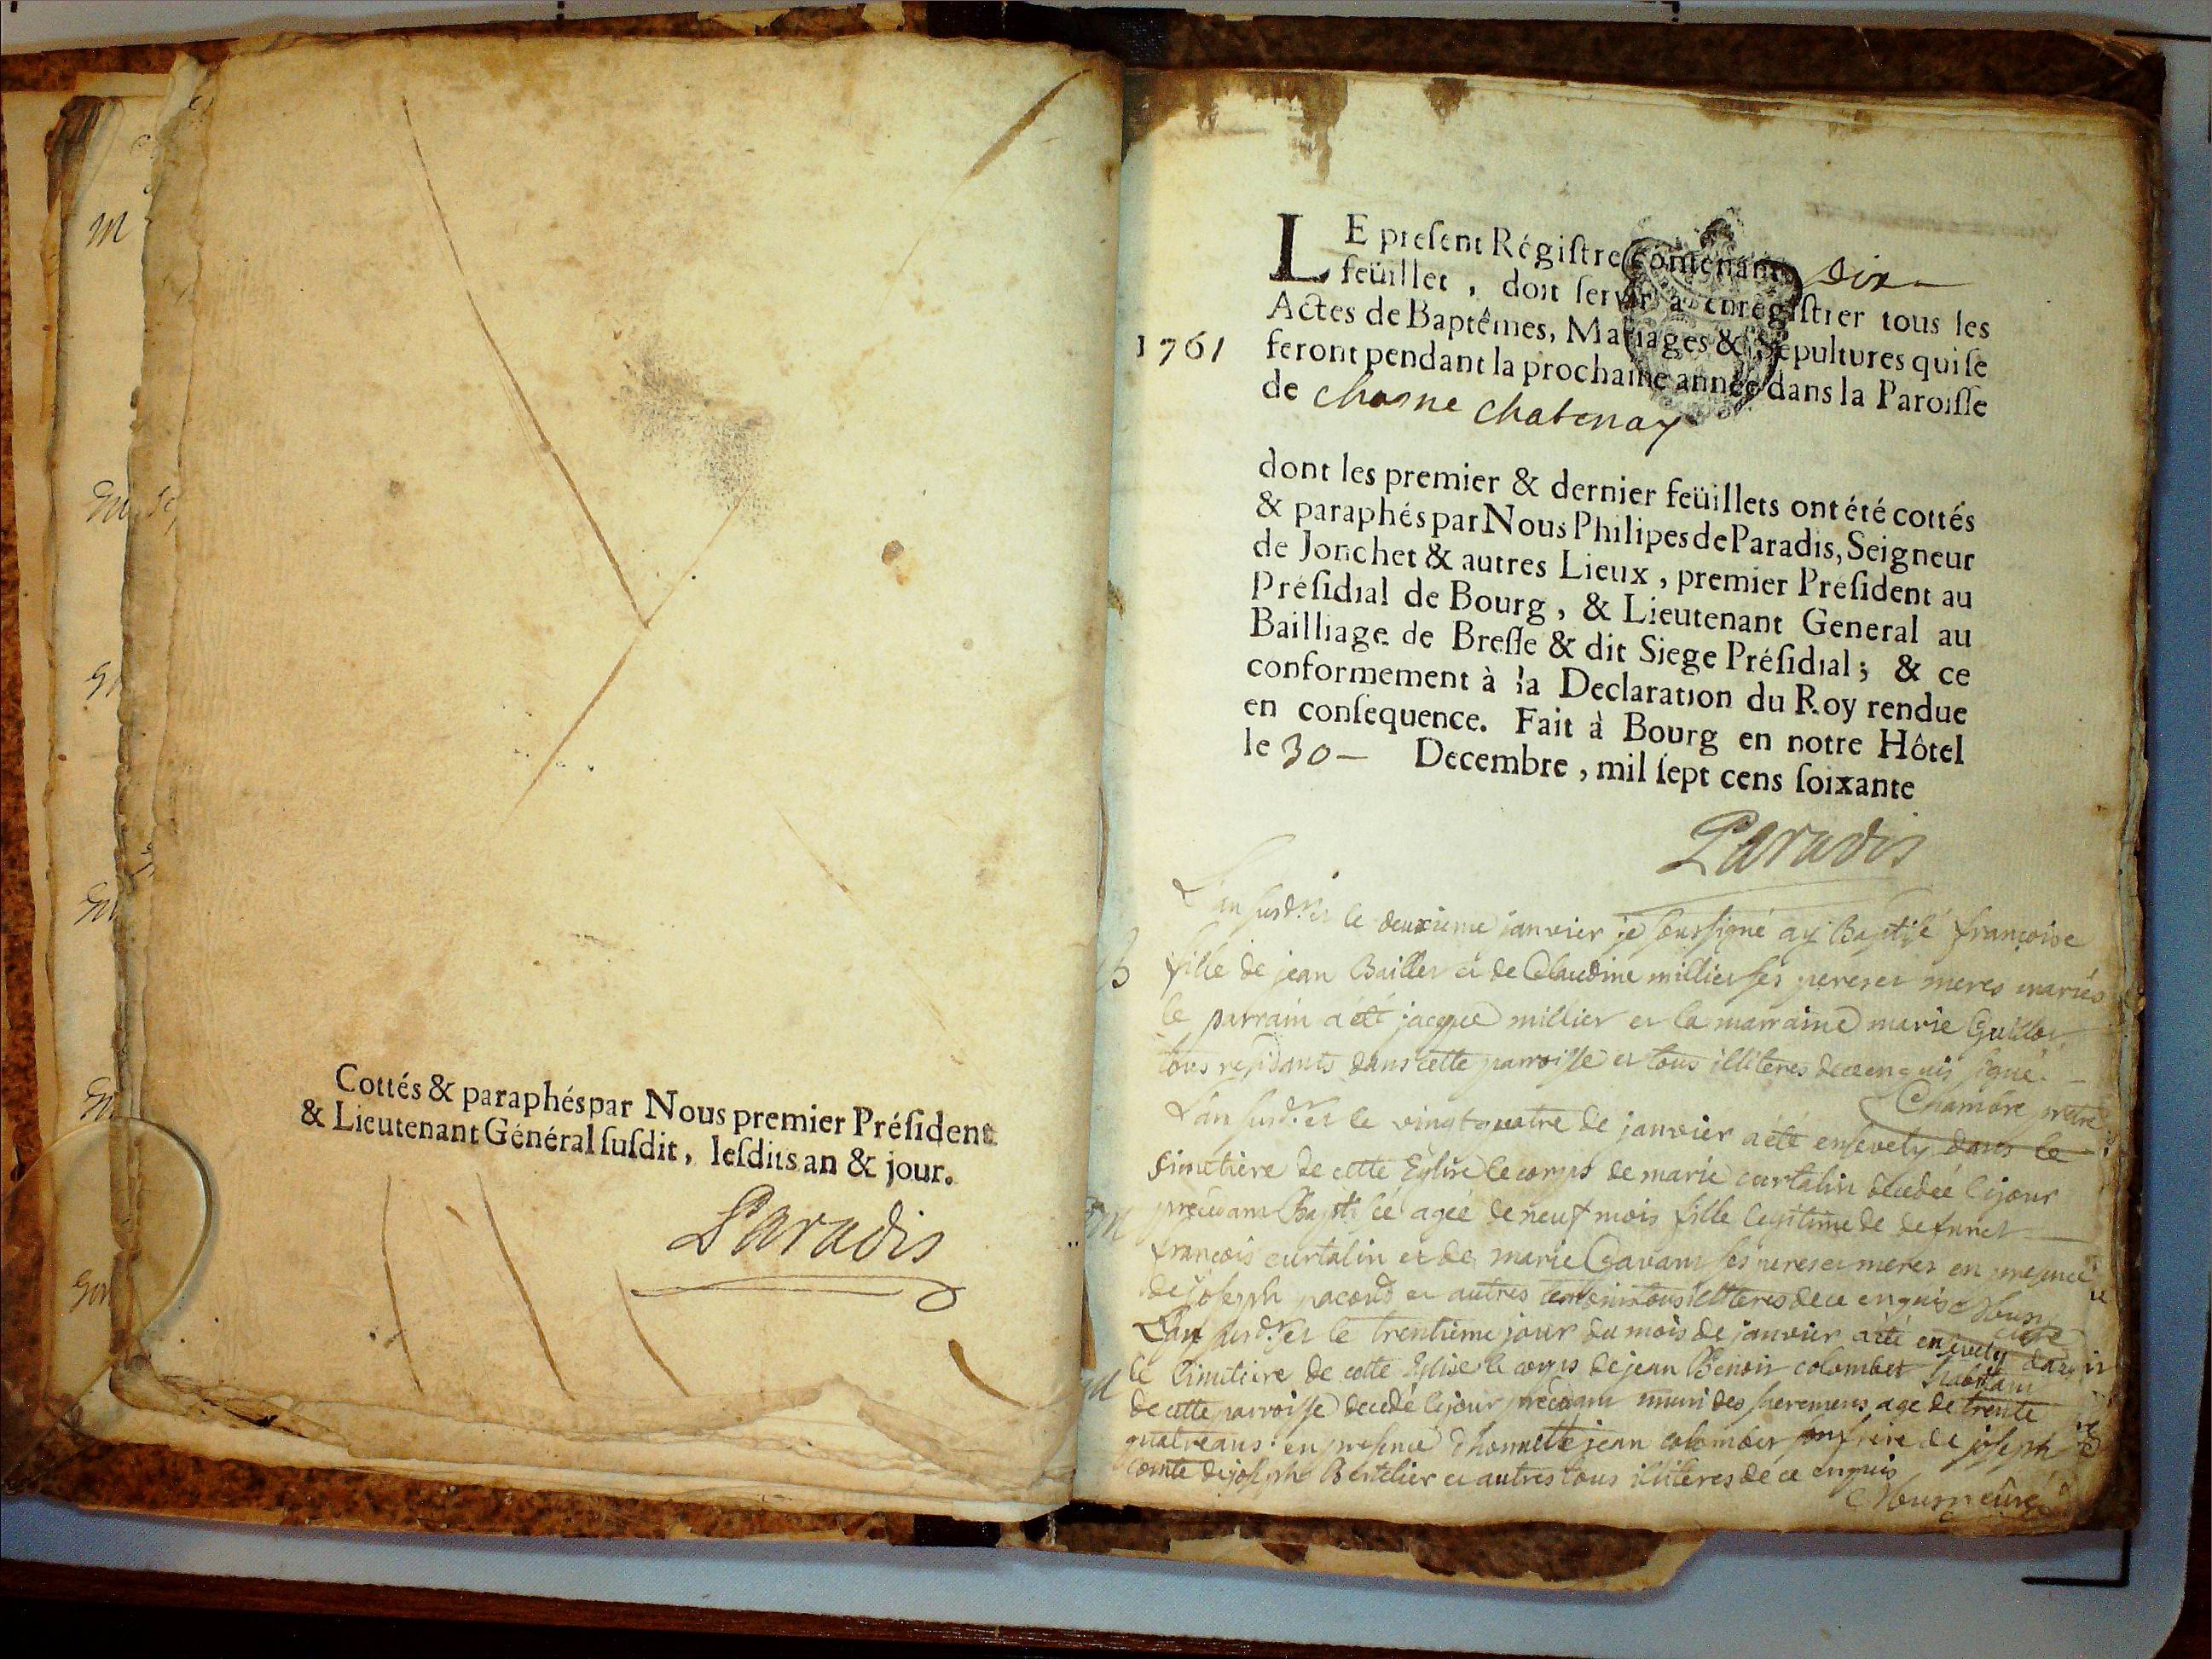 m
Cottés & paraphés par Nous premier Président
& Lieutenant Général ſuſdit, leſdits an & jour.
Paradis
LE preſent Régiſtre contenant Dix
feüillet, doit ſervir à enregiſtrer tous les
Actes de Baptêmes, Mariages & Sepultures qui ſe
1761 feront pendant la prochaine année dans la Paroiſſe
de Chasne Chatenay
dont les premier & dernier feüillets ont été cottés
& paraphés par Nous Philipes de Paradis, Seigneur
de Jonchet & autres Lieux, premier Préſident au
Préſidial de Bourg, & Lieutenant General au
Bailliage de Breſſe & dit Siege Préſidial; & ce
conformement à la Declaration du Roy rendue
en conſequence. Fait à Bourg en notre Hôtel
le 30 Decembre, mil ſept cens ſoixante
Paradis
L'an le deuxieme janvier je soussigné ay Baptisé françoise
B fille de jean Bailler et de Claudine millier ses peres et meres mariés
le parrain a été jacque millier et la marraine marie Guillot
tous residants dans cette parroisse et tous illiteres de ce enquis signé
Chambre prêtre
L'an le vingt quatre de janvier a été ensevely dans le
simetière de cette Eglise le corps de marie curtalin decedée le jour
m precedant Baptisée agée de neuf mois fille legitime de defunct
françois curtalin et de marie Gavant ses peres et meres en presence
de joseph pacoud et autres temoins tous illiteres de ce enquis
L'an le trentieme jour du mois de janvier a été ensevely dans
m le Cimetiere de cette Eglise le corps de jean Benoit colombet habitant
de cette parroisse decedé le jour precedant muni des sacremens age de trente
quatre ans en presence d'honnette jean colombet son frere de joseph
comte de joseph Bertelier et autres tous illiteres de ce enquis
curé